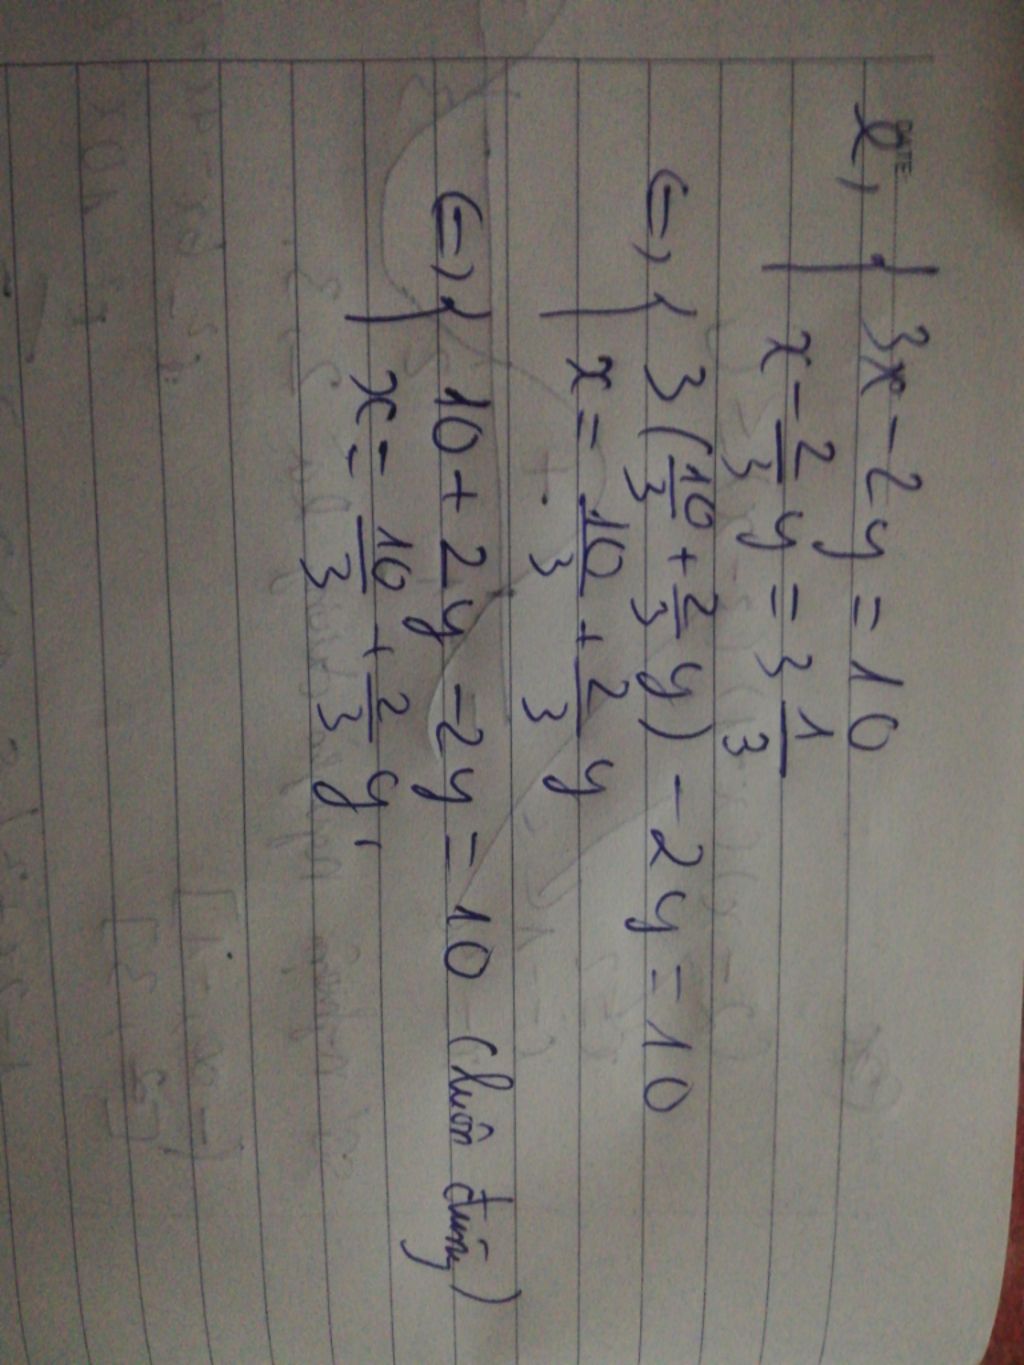 DATE
b, { 3x - 2y = 10
x - 2/3 y = 3 1/3
<=> { 3(10/3 + 2/3 y) - 2y = 10
x = 10/3 + 2/3 y
<=> { 10 + 2y - 2y = 10 (luôn đúng)
x = 10/3 + 2/3 y